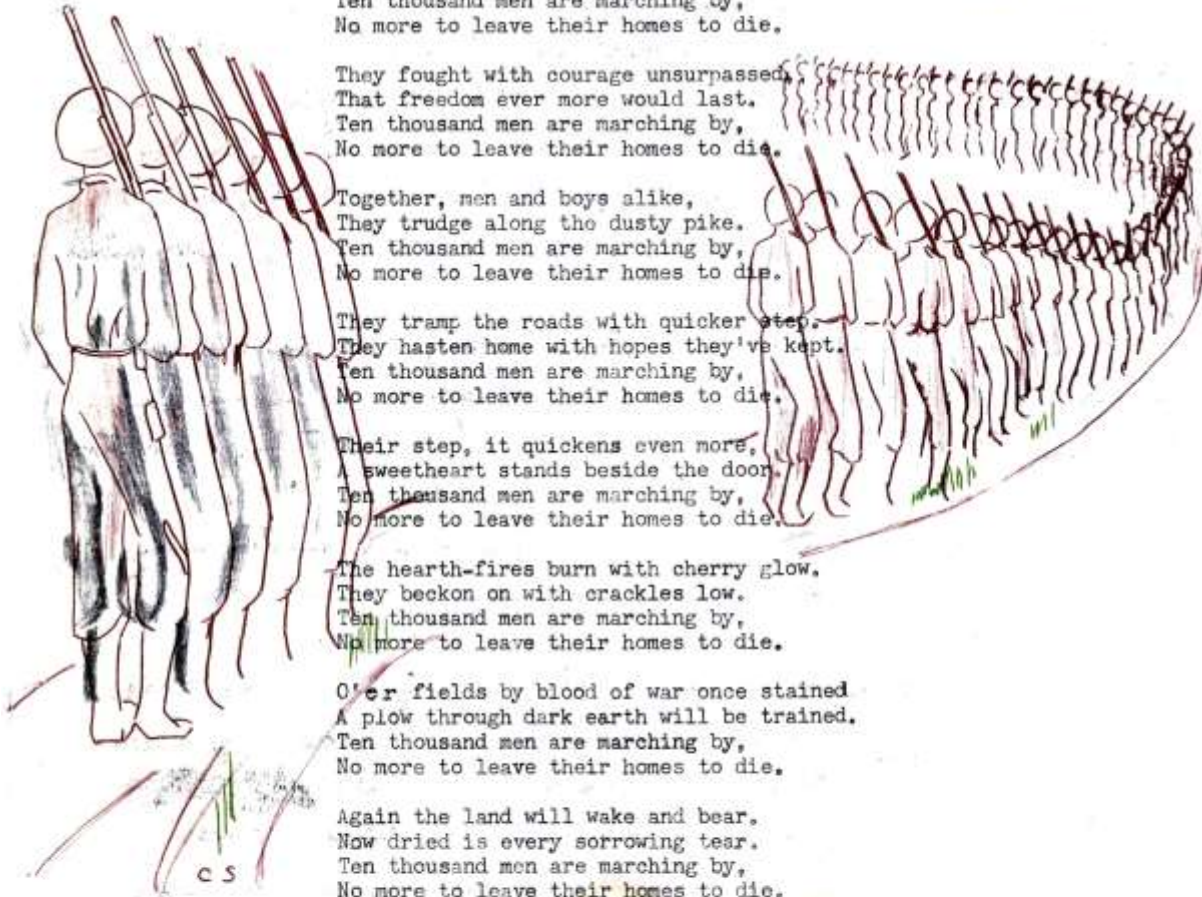 Ten thousand men are marching by,
No more to leave their homes to die.
They fought with courage unsurpassed,
That freedom ever more would last.
Ten thousand men are marching by,
No more to leave their homes to die.
Together, men and boys alike,
They trudge along the dusty pike.
Ten thousand men are marching by,
No more to leave their homes to die.
They tramp the roads with quicker step.
They hasten home with hopes they've kept.
Ten thousand men are marching by,
No more to leave their homes to die.
Their step, it quickens even more,
A sweetheart stands beside the door.
Ten thousand men are marching by,
No more to leave their homes to die.
The hearth-fires burn with cherry glow.
They beckon on with crackles low.
Ten thousand men are marching by,
No more to leave their homes to die.
O'er fields by blood of war once stained
A plow through dark earth will be trained.
Ten thousand men are marching by,
No more to leave their homes to die.
Again the land will wake and bear.
Now dried is every sorrowing tear.
Ten thousand men are marching by,
No more to leave their homes to die.
CS